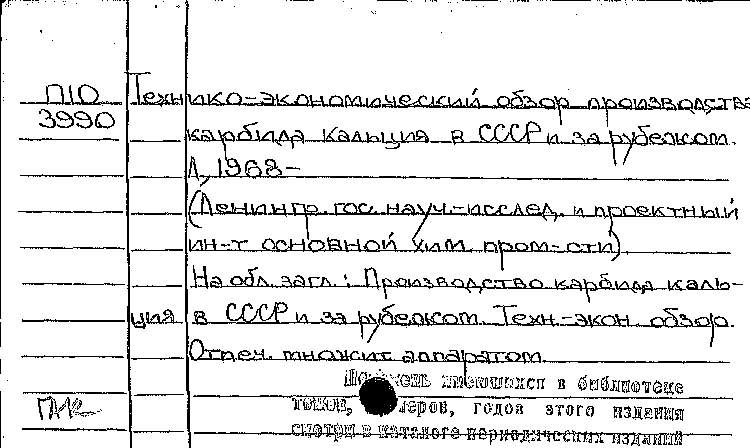 П10
3990
Технико-экономический обзор производства
карбида кальция в СССР и за рубежом.
Л., 1968-
(Ленингр. гос. науч.-исслед. и проектный
ин-т основной хим. пром-сти).
На обл. загл.: Производство карбида каль-
ция в СССР и за рубежом. Техн.-экон. обзор.
Отпеч. множит. аппаратом
имеющихся в библиотеке
томов, номеров, годов этого издания
смотри в каталоге периодических изданий